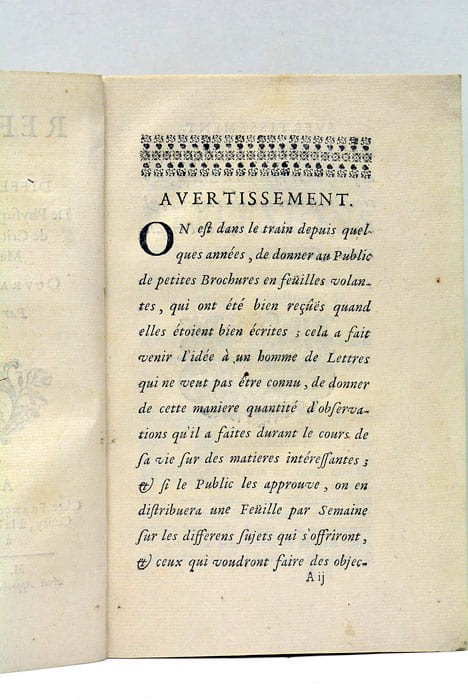 AVERTISSEMENT.
ON eſt dans le train depuis quel-
ques années, de donner au Public
de petites Brochures en feüilles volan-
tes, qui ont été bien reçûës quand
elles étoient bien écrites ; cela a fait
venir l'idée à un homme de Lettres
qui ne veut pas être connu, de donner
de cette maniere quantité d'obſerva-
tions qu'il a faites durant le cours de
ſa vie ſur des matieres intéreſſantes ;
& ſi le Public les approuve, on en
diſtribuera une Feüille par Semaine
ſur les differens ſujets qui s'offriront,
& ceux qui voudront faire des objec-
A ij